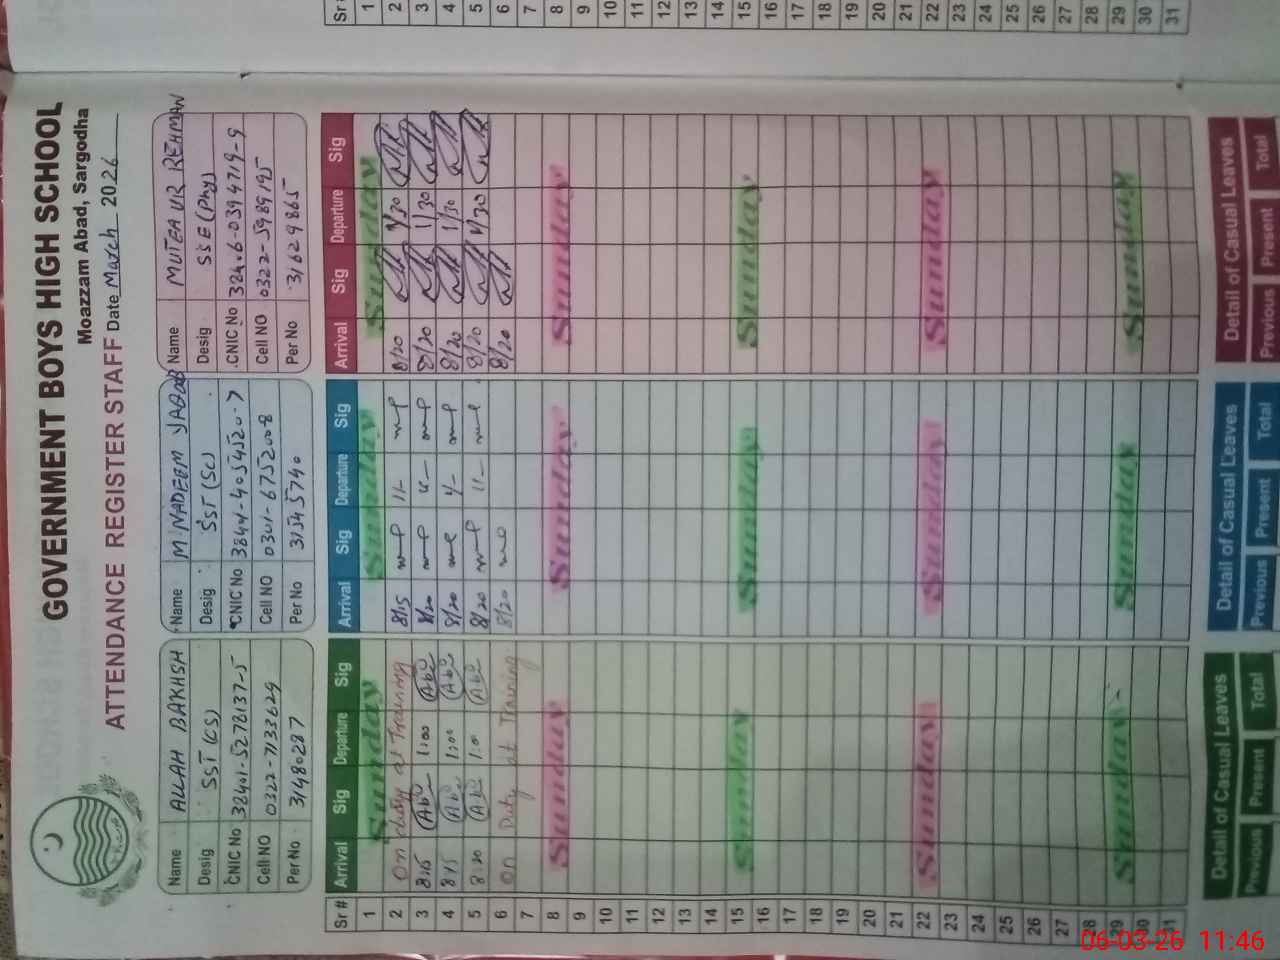 GOVERNMENT BOYS HIGH SCHOOL
Moazzam Abad, Sargodha
ATTENDANCE REGISTER STAFF Date March 2026
Name ALLAH BAKHSH
Desig SST (CS)
CNIC No 38401-5278137-5
Cell NO 0322-7133629
Per No 3148087
Name M NADEEM YAQOOB
Desig SST (SC)
CNIC No 38401-4054520-7
Cell NO 0301-6752008
Per No 31545740
Name MUTEA UR REHMAN
Desig SSE (Phy)
CNIC No 32406-0394719-9
Cell NO 0322-5989195
Per No 31629865
Sr # Arrival Sig Departure Sig Arrival Sig Departure Sig Arrival Sig Departure Sig
1 Sunday Sunday Sunday
2 On duty at Training 8/15 11- 8/20 1/30
3 8:15 1:00 8/20 11- 8/20 1/30
4 8:15 1:00 8/20 8/20 1/30
5 8:20 1:00 8/20 11- 8/20 1/30
6 On Duty at Training 8/20 8/20
7
8 Sunday Sunday Sunday
9
10
11
12
13
14
15 Sunday Sunday Sunday
16
17
18
19
20
21
22 Sunday Sunday Sunday
23
24
25
26
27
28
29 Sunday Sunday Sunday
30
31
Detail of Casual Leaves Detail of Casual Leaves Detail of Casual Leaves
Previous Present Total Previous Present Total Previous Present Total
Sr
1
2
3
4
5
6
7
8
9
10
11
12
13
14
15
16
17
18
19
20
21
22
23
24
25
26
27
28
29
30
31
06-03-26 11:46